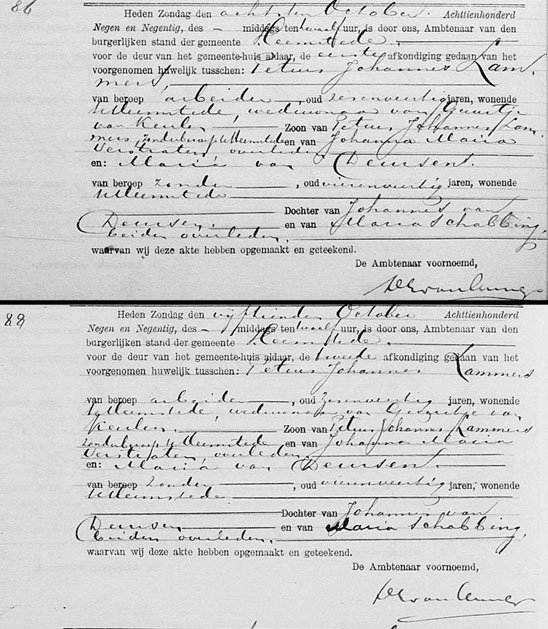 86
Heden Zondag den achtsten October Achttienhonderd
Negen en Negentig, des – middags ten twaalf uur, is door ons, Ambtenaar van den
burgerlijken stand der gemeente Heemstede
voor de deur van het gemeente-huis aldaar, de eerste afkondiging gedaan van het
voorgenomen huwelijk tusschen: Petrus Johannes Lam
mers,
van beroep arbeider, oud zevenveertig jaren, wonende
te Heemstede, weduwnaar van Geertje
van Keulen Zoon van Petrus Johannes Lam
mers, zonder beroep te Heemstede en van Johanna Maria
Verstraten, overleden
en: Maria van Deursen
van beroep zonder, oud vierenveertig jaren, wonende
te Heemstede
Dochter van Johannes van
Deursen en van Maria Schabbing,
beiden overleden,
waarvan wij deze akte hebben opgemaakt en geteekend.
De Ambtenaar voornoemd,
88
Heden Zondag den vijftienden October Achttienhonderd
Negen en Negentig, des – middags ten twaalf uur, is door ons, Ambtenaar van den
burgerlijken stand der gemeente Heemstede
voor de deur van het gemeente-huis aldaar, de tweede afkondiging gedaan van het
voorgenomen huwelijk tusschen: Petrus Johannes Lammers
van beroep arbeider, oud zevenveertig jaren, wonende
te Heemstede, weduwnaar van Geertje van
Keulen Zoon van Petrus Johannes Lammers
zonder beroep te Heemstede en van Johanna Maria
Verstraten, overleden
en: Maria van Deursen
van beroep zonder, oud vierenveertig jaren, wonende
te Heemstede
Dochter van Johannes van
Deursen en van Maria Schabbing,
beiden overleden,
waarvan wij deze akte hebben opgemaakt en geteekend.
De Ambtenaar voornoemd,